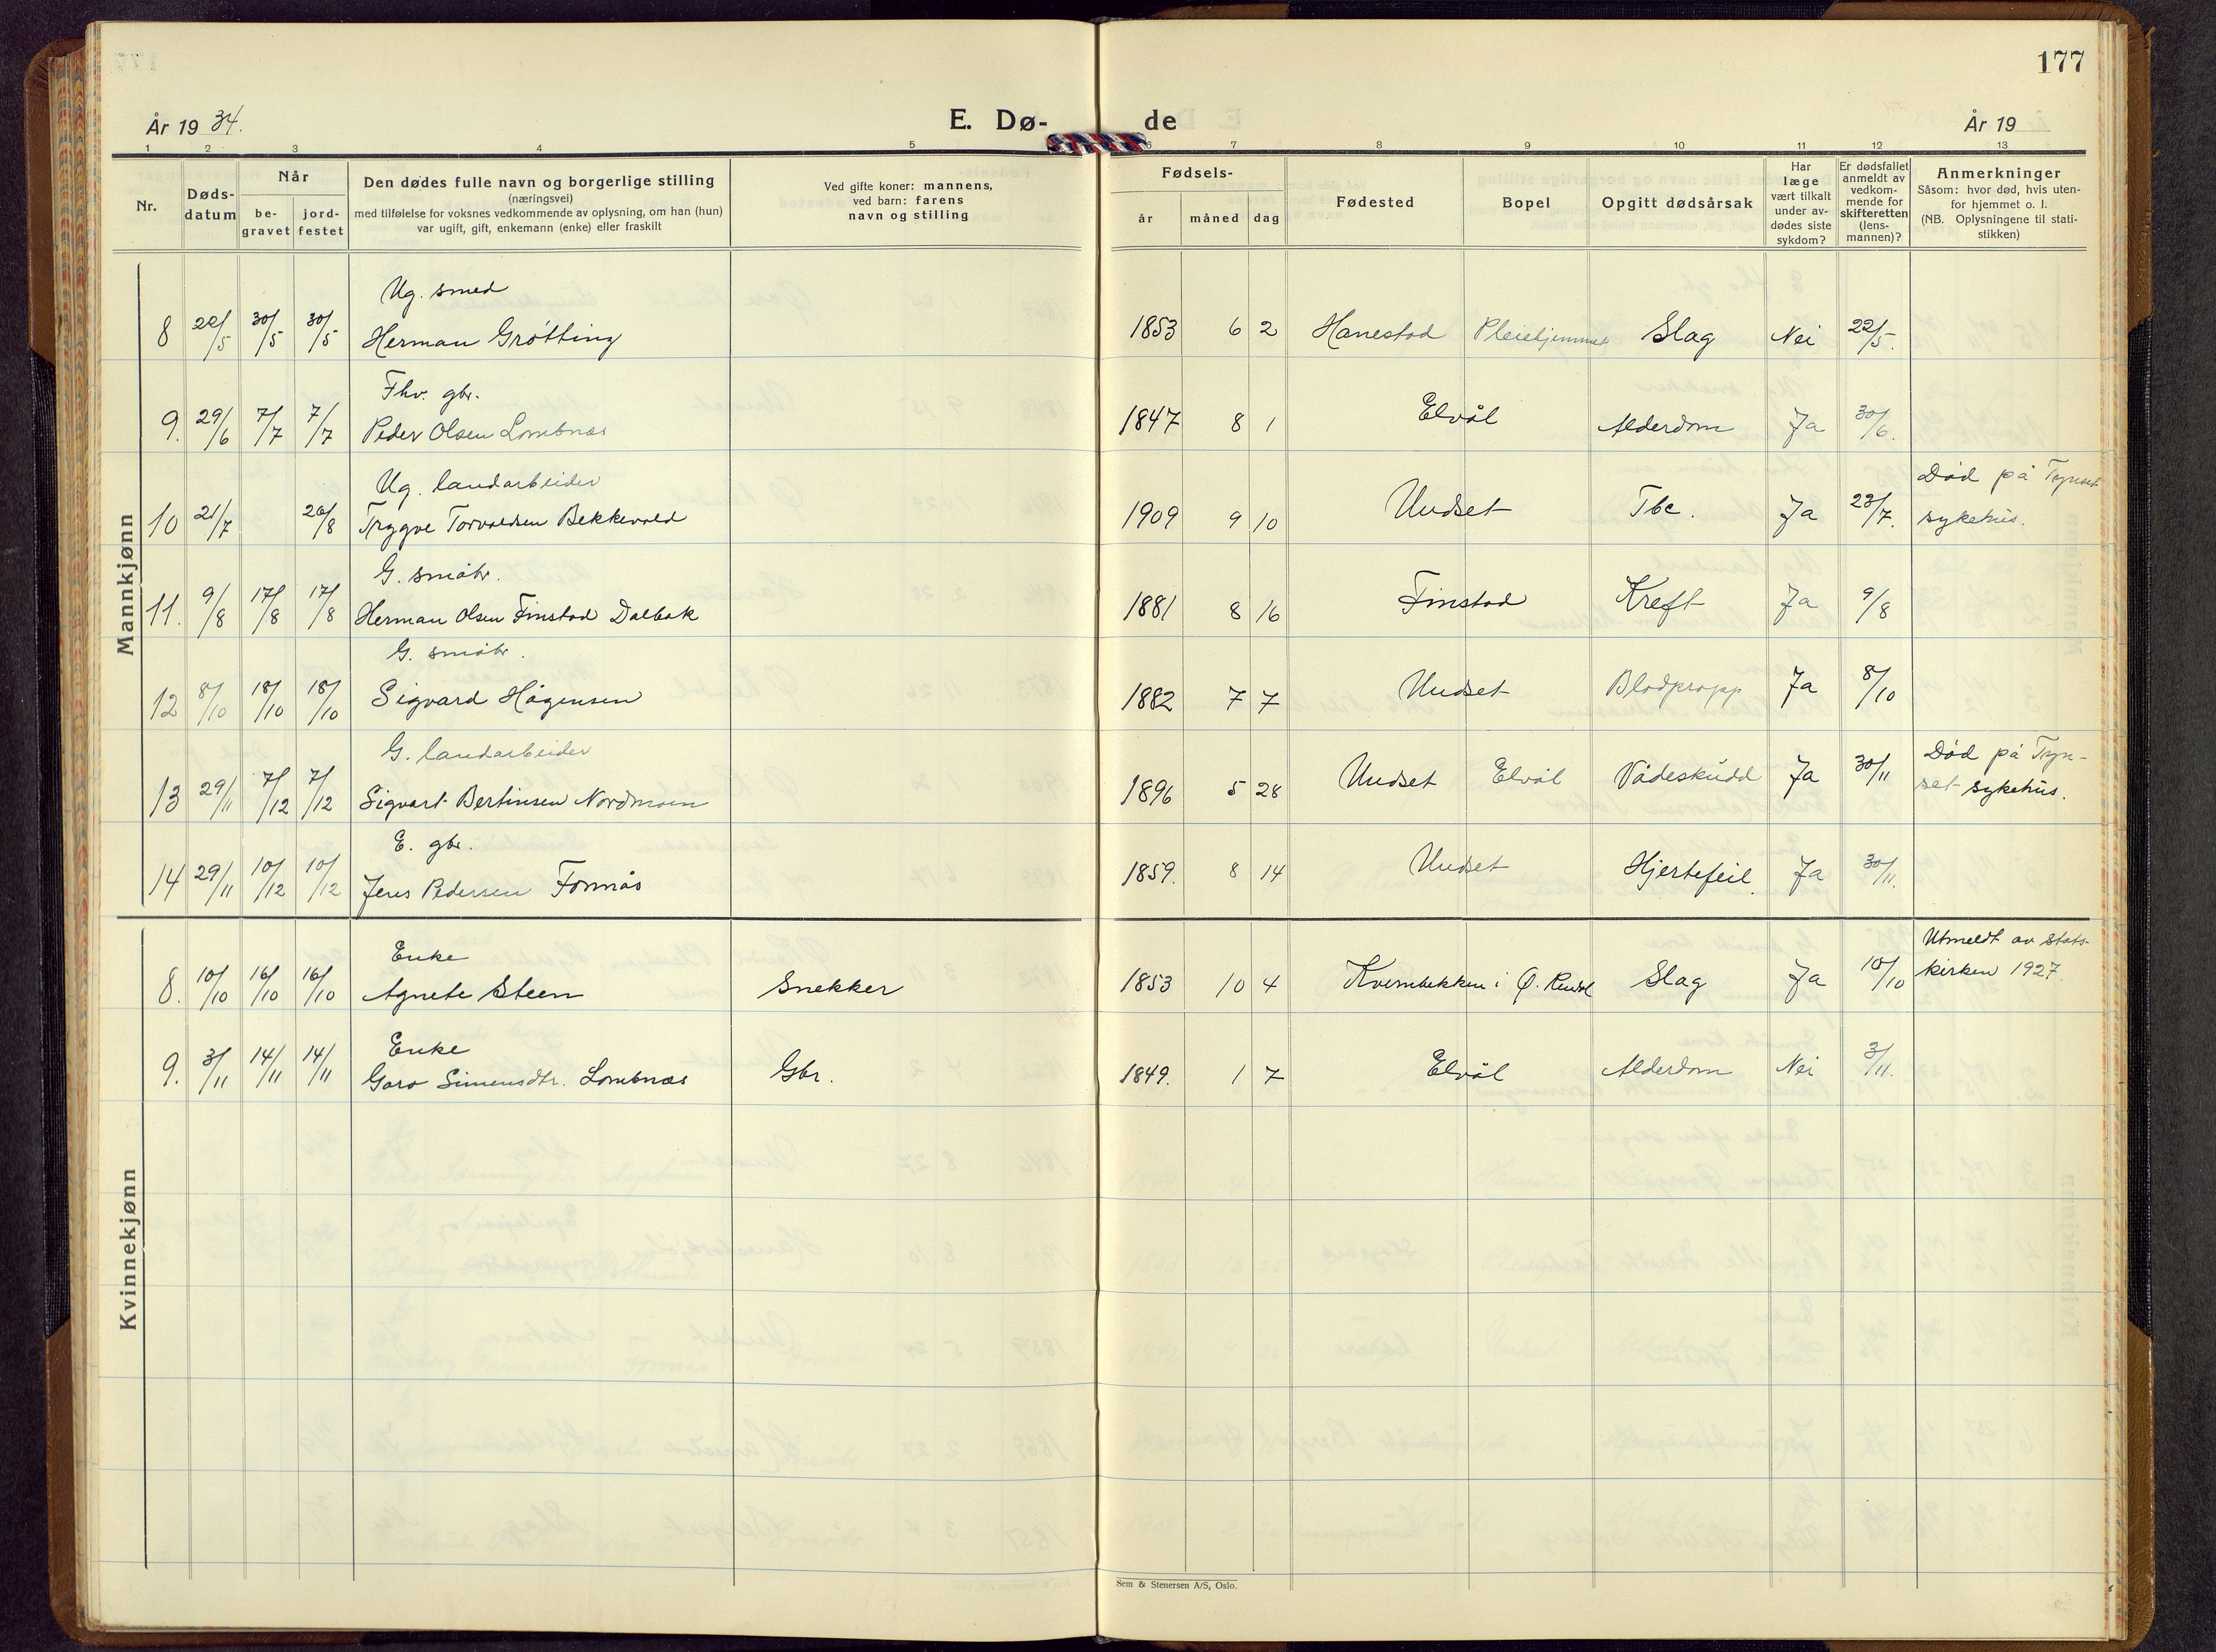 177
År 19 34.
E. Dø-
de
År 19
1 2 3 4 5 6 7 8 9 10 11 12 13
Nr.
Døds-
datum
Når
be-
gravet
jord-
festet
Den dødes fulle navn og borgerlige stilling
(næringsvei)
med tilføielse for voksnes vedkommende av oplysning, om han (hun)
var ugift, gift, enkemann (enke) eller fraskilt
Ved gifte koner: mannens,
ved barn: farens
navn og stilling
Fødsels-
år måned dag
Fødested
Bopel
Opgitt dødsårsak
Har
læge
vært tilkalt
under av-
dødes siste
sykdom?
Er dødsfallet
anmeldt av
vedkom-
mende for
skifteretten
(lens-
mannen)?
Anmerkninger
Såsom: hvor død, hvis uten-
for hjemmet o. l.
(NB. Oplysningene til stati-
stikken)
Mannkjønn
Ug. smed
8 22/5 30/5 30/5 Herman Grøtting 1853 6 2 Hanestad Pleiehjemmet Slag Nei 22/5.
Fhv. gbr.
9. 29/6 7/7 7/7 Peder Olsen Lombnæs 1847 8 1 Elvål Alderdom Ja 30/6.
Ug. landarbeider
10 21/7 26/8 Trygve Torvaldsen Bekkevold 1909 9 10 Undset Tbc. Ja 23/7.
Død på Tynset
sykehus.
G. småbr.
11. 9/8 17/8 17/8 Herman Olsen Finstad Dalbak 1881 8 16 Finstad Kreft Ja 9/8
G. småbr.
12 8/10 18/10 18/10 Sigvard Hågensen 1882 7 7 Undset Blodpropp Ja 8/10
G. landarbeider
13 29/11 7/12 7/12 Sigvart Bertinsen Nordmoen 1896 5 28 Undset Elvål Vådeskudd Ja 30/11
Død på Tyn-
set sykehus.
E. gbr.
14 29/11 10/12 10/12 Jens Pedersen Fonnås 1859. 8 14 Undset Hjertefeil. Ja 30/11.
Kvinnekjønn
Enke
8. 10/10 16/10 16/10 Agnete Steen Snekker 1853 10 4 Kvernbekken i Ø. Rendal Slag Ja 10/10
Utmeldt av stats-
kirken 1927.
Enke
9. 3/11 14/11 14/11 Goro Simensdtr. Lombnæs Gbr. 1849. 1 7 Elvål Alderdom Nei 3/11.
Sem & Stenersen A/S, Oslo.